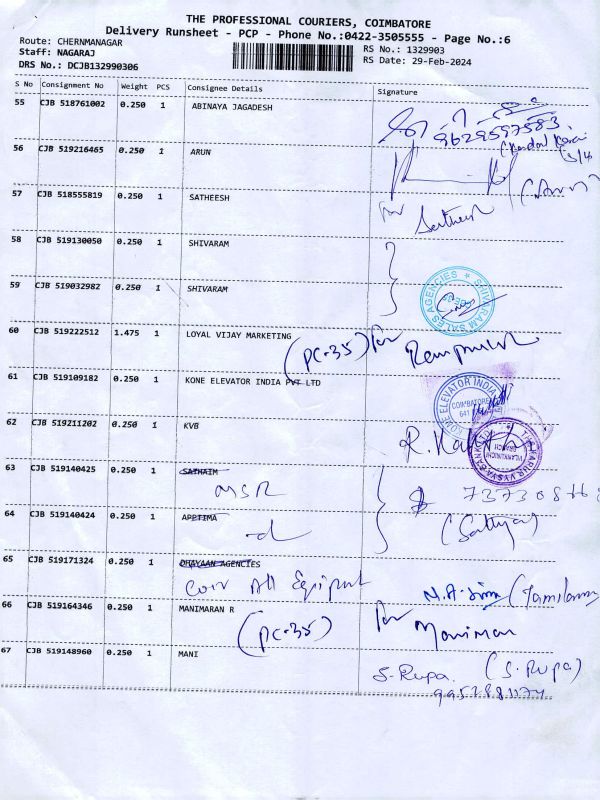 THE PROFESSIONAL COURIERS, COIMBATORE
Delivery Runsheet - PCP - Phone No.:0422-3505555 - Page No.:6
Route: CHERNMANAGAR
RS No.: 1329903
Staff: NAGARAJ
RS Date: 29-Feb-2024
DRS No.: DCJB132990306
S No Consignment No Weight PCS Consignee Details Signature
55 CJB 518761002 0.250 1 ABINAYA JAGADESH
9629597583
56 CJB 519216465 0.250 1 ARUN
57 CJB 518555819 0.250 1 SATHEESH
for Satheesh
58 CJB 519130050 0.250 1 SHIVARAM
59 CJB 519032982 0.250 1 SHIVARAM
SHIVARAM SALES AGENCIES
60 CJB 519222512 1.475 1 LOYAL VIJAY MARKETING
(PC-35) for
61 CJB 519109182 0.250 1 KONE ELEVATOR INDIA PVT LTD
KONE ELEVATOR INDIA
COIMBATORE
641
62 CJB 519211202 0.250 1 KVB
THE KARUR VYSYA BANK LTD
BRANCH
63 CJB 519140425 0.250 1 SATHAIM
MSR
64 CJB 519140424 0.250 1 APPTIMA
(Sathya)
65 CJB 519171324 0.250 1 DHAYAAN AGENCIES
Coir All Equipment
66 CJB 519164346 0.250 1 MANIMARAN R
(PC-35) for Maniman
67 CJB 519148960 0.250 1 MANI
S. Rupa. (S. Rupa)